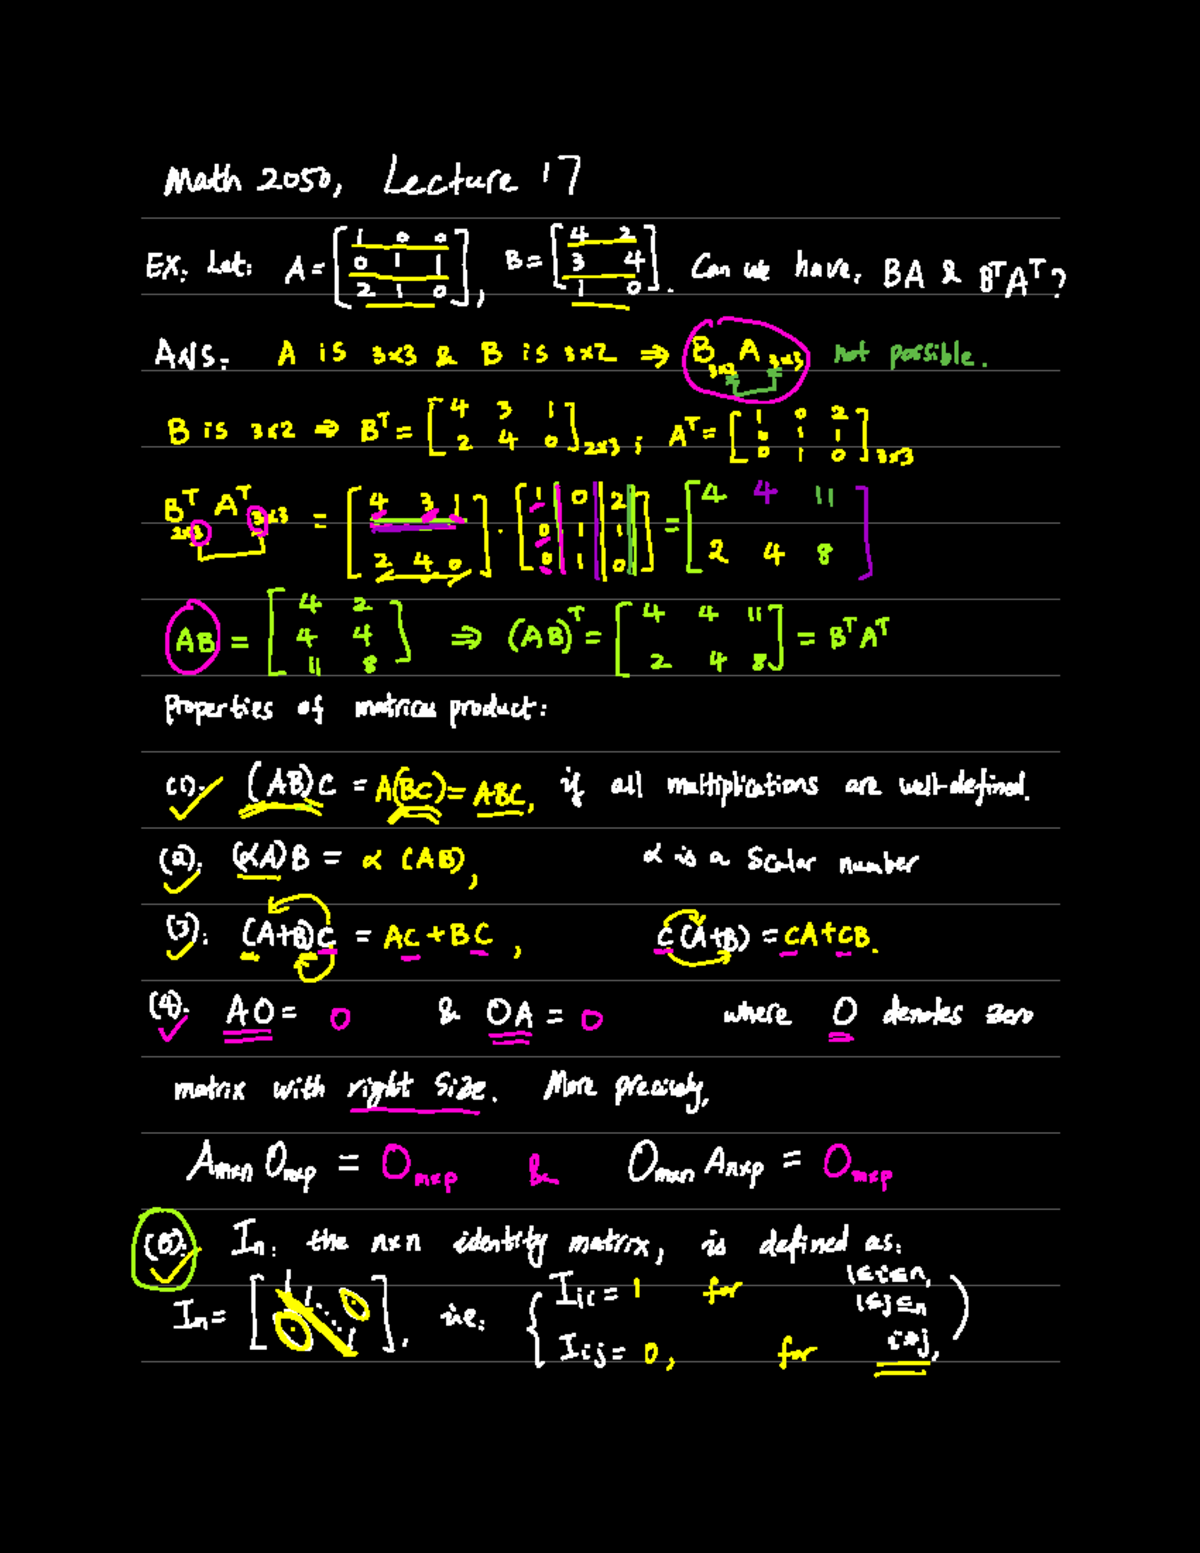 Math 2050, Lecture 17
EX: Let: A = [1 0 0; 0 1 1; 2 1 0], B = [4 2; 3 4; 1 0]. Can we have, BA & BᵀAᵀ?
Ans: A is 3×3 & B is 3×2 ⇒ B₃ₓ₂ A₃ₓ₃ not possible.
B is 3×2 ⇒ Bᵀ = [4 3 1; 2 4 0]₂ₓ₃ ; Aᵀ = [1 0 2; 0 1 1; 0 1 0]₃ₓ₃
Bᵀ₂ₓ₃ Aᵀ₃ₓ₃ = [4 3 1; 2 4 0] · [1 0 2; 0 1 1; 0 1 0] = [4 4 11; 2 4 8]
AB = [4 2; 4 4; 11 8] ⇒ (AB)ᵀ = [4 4 11; 2 4 8] = BᵀAᵀ
Properties of matrices product:
(1). (AB)C = A(BC) = ABC, if all multiplications are well-defined.
(2). (αA)B = α(AB), α is a scalar number
(3). (A+B)C = AC + BC, C(A+B) = CA + CB.
(4). AO = O & OA = O where O denotes zero
matrix with right size. More precisely,
Aₘₓₙ Oₙₓₚ = Oₘₓₚ & Oₘₓₙ Aₙₓₚ = Oₘₓₚ
(5). Iₙ: the n×n identity matrix, is defined as:
Iₙ = [1 1 ⋱ 1], i.e. { Iᵢᵢ = 1 for 1≤i≤n, 1≤j≤n
Iᵢⱼ = 0, for i≠j, )